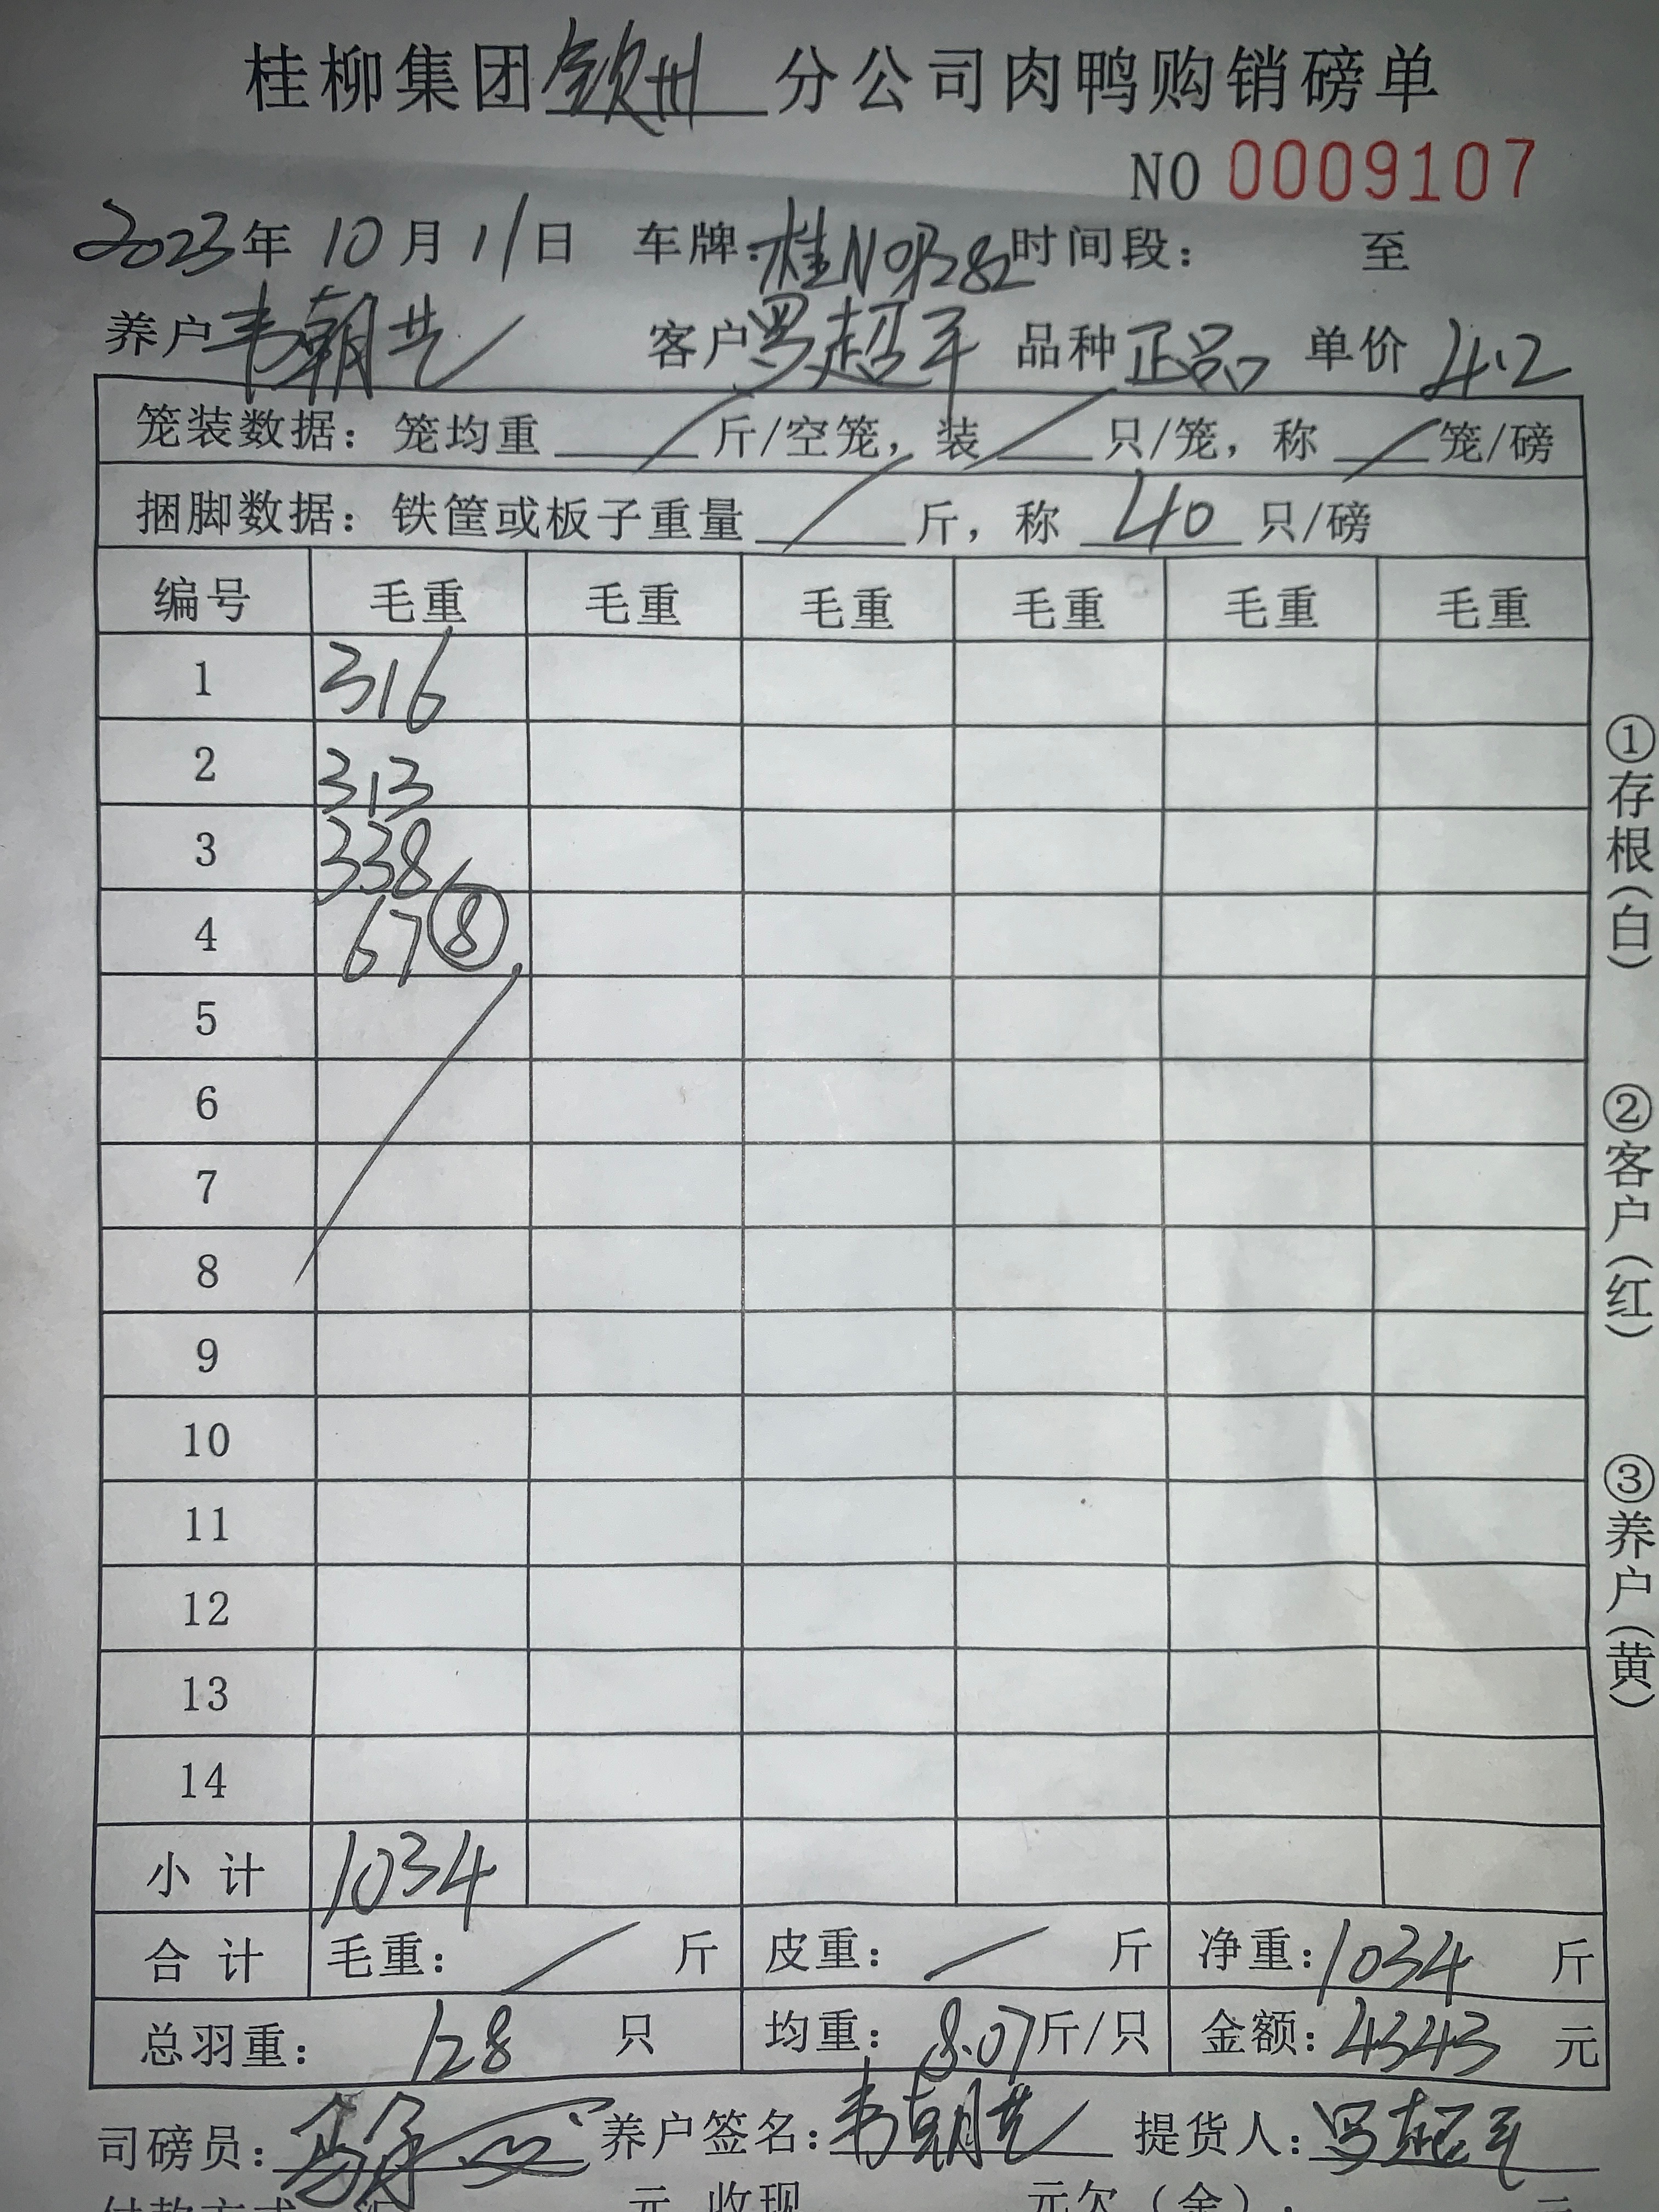 桂柳集团钦州分公司肉鸭购销磅单
NO 0009107
2023年 10月 11日 车牌:桂N0B282 时间段: 至
养户 韦朝艺 客户 罗超平 品种 正品 单价 4.2
笼装数据:笼均重 / 斤/空笼,装 / 只/笼,称 / 笼/磅
捆脚数据:铁筐或板子重量 / 斤,称 40 只/磅
编号 毛重 毛重 毛重 毛重 毛重 毛重
1 316
2 313
3 338
4 67 ⑧
5
6
7
8
9
10
11
12
13
14
小计 1034
合计 毛重: / 斤 皮重: / 斤 净重:1034 斤
总羽重: 128 只 均重: 8.07斤/只 金额:4343 元
司磅员: 养户签名:韦朝艺 提货人:罗超平
付款方式 汇 元 收现 元欠(余): 元
①存根(白)
②客户(红)
③养户(黄)